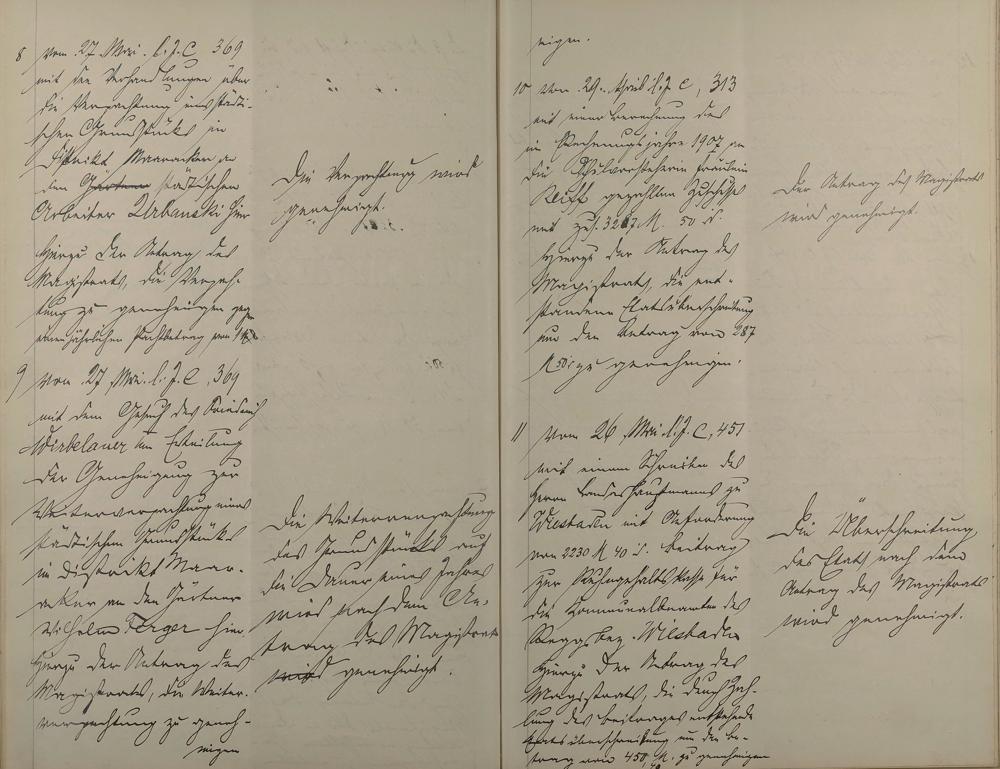 8 Vom 27. Mai l. J. C, 369
mit den Verhandlungen über
die Verpachtung eines städti-
schen Grundstücks im
Distrikt Maaracker an
den Gärtner städtischen
Arbeiter Urbanski hier
Hierzu der Antrag des
Magistrats, die Verpach-
tung zu genehmigen gegen
einen jährlichen Pachtbetrag von
Die Verpachtung wird
genehmigt.
9 Vom 27. Mai l. J. C, 369
mit dem Gesuch des Friedrich
Wirbelauer um Erteilung
der Genehmigung zur
Weiterverpachtung eines
städtischen Grundstücks
im Distrikt Maar-
acker an den Gärtner
Wilhelm Berger hier.
Hierzu der Antrag des
Magistrats, die Weiter-
verpachtung zu geneh-
migen
Die Weiterverpachtung
des Grundstücks auf
die Dauer eines Jahres
wird nach dem An-
trag des Magistrats
wird genehmigt.
migen.
10 Vom 29. April l. J. C, 313
mit einer Berechnung des
im Rechnungsjahre 1907 an
die Schulvorsteherin Fräulein
Reiff gezahlten Zuschusses
mit zus. 3287 M. 50 d.
Hierzu der Antrag des
Magistrats, die ent-
standene Etatsüberschreitung
um den Betrag von 287
M 50 d zu genehmigen.
Der Antrag des Magistrats
wird genehmigt.
11 Vom 26. Mai l. J. C, 451
mit einem Schreiben des
Herrn Landeshauptmanns zu
Wiesbaden mit Anforderung
von 2230 M 40 d. Beitrag
zur Ruhegehaltskasse für
die Kommunalbeamten des
Regs. Bez. Wiesbaden
Hierzu der Antrag des
Magistrats, die durch Zah-
lung des Beitrages entstehende
Etatsüberschreitung um den Be-
trag von 450, 40 M. zu genehmigen
Die Überschreitung
des Etats nach dem
Antrag des Magistrats
wird genehmigt.